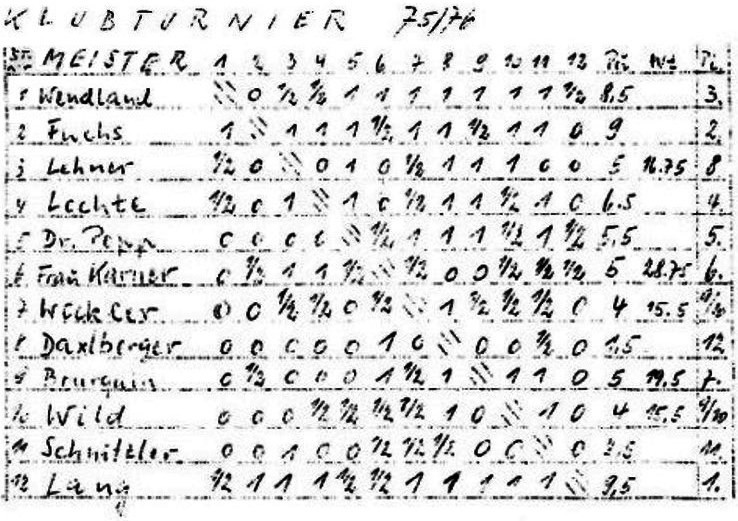 KLUBTURNIER 75/76
MEISTER 1 2 3 4 5 6 7 8 9 10 11 12 Pu Wt Pl.
1 Wendland 0 ½ ½ 1 1 1 1 1 1 1 ½ 8,5 3.
2 Fuchs 1 1 1 1 ½ 1 1 ½ 1 1 0 9 2.
3 Lehner ½ 0 0 1 0 ½ 1 1 1 0 0 5 16.75 8.
4 Lechte ½ 0 1 1 0 ½ 1 1 ½ 1 0 6.5 4.
5 Dr. Popp 0 0 0 0 ½ 1 1 1 ½ 1 ½ 5,5 5.
6 Frau Karner 0 ½ 1 1 ½ ½ 0 0 ½ ½ ½ 5 28.75 6.
7 Wickler 0 0 ½ ½ 0 ½ 1 ½ ½ ½ 0 4 15.5 9/10
8 Daxlberger 0 0 0 0 0 1 0 0 0 ½ 0 1,5 12
9 Bourquin 0 ½ 0 0 0 1 ½ 1 1 1 0 5 19.5 7.
10 Wild 0 0 0 ½ ½ ½ ½ 1 0 1 0 4 15.5 9/10
11 Schnitzler 0 0 1 0 0 ½ ½ ½ 0 0 0 2,5 11.
12 Lang ½ 1 1 1 ½ ½ 1 1 1 1 1 9,5 1.